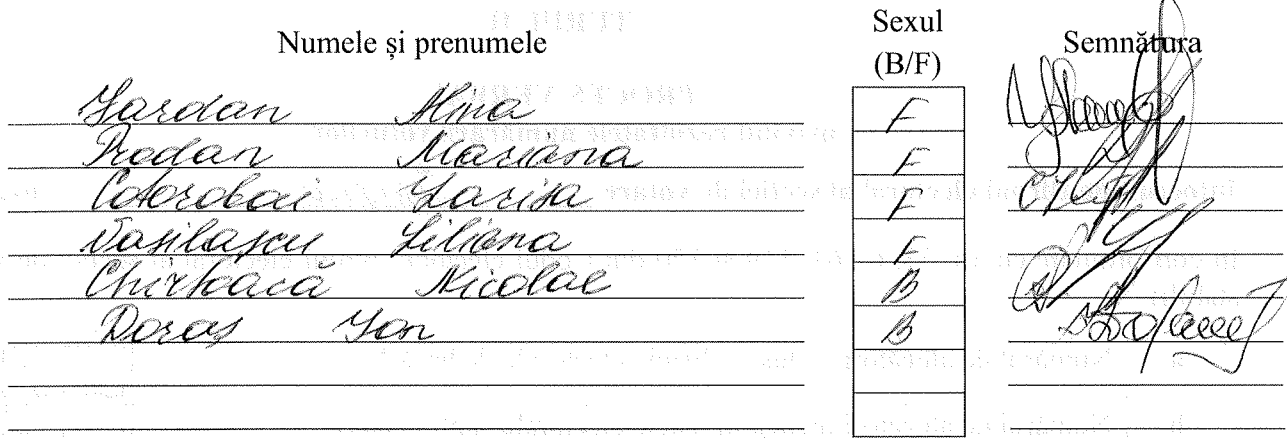 Numele și prenumele Sexul (B/F) Semnătura
Iardan Alina F
Prodan Mariana F
Cotorobai Larisa F
Vasilașcu Liliana F
Chirtoacă Nicolae B
Doroș Ion B